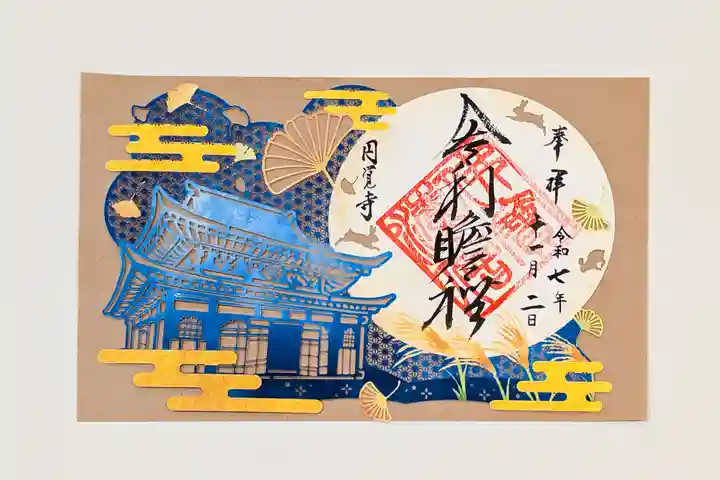 奉拝 令和七年
十一月二日
舎利瞻禮
円覚寺